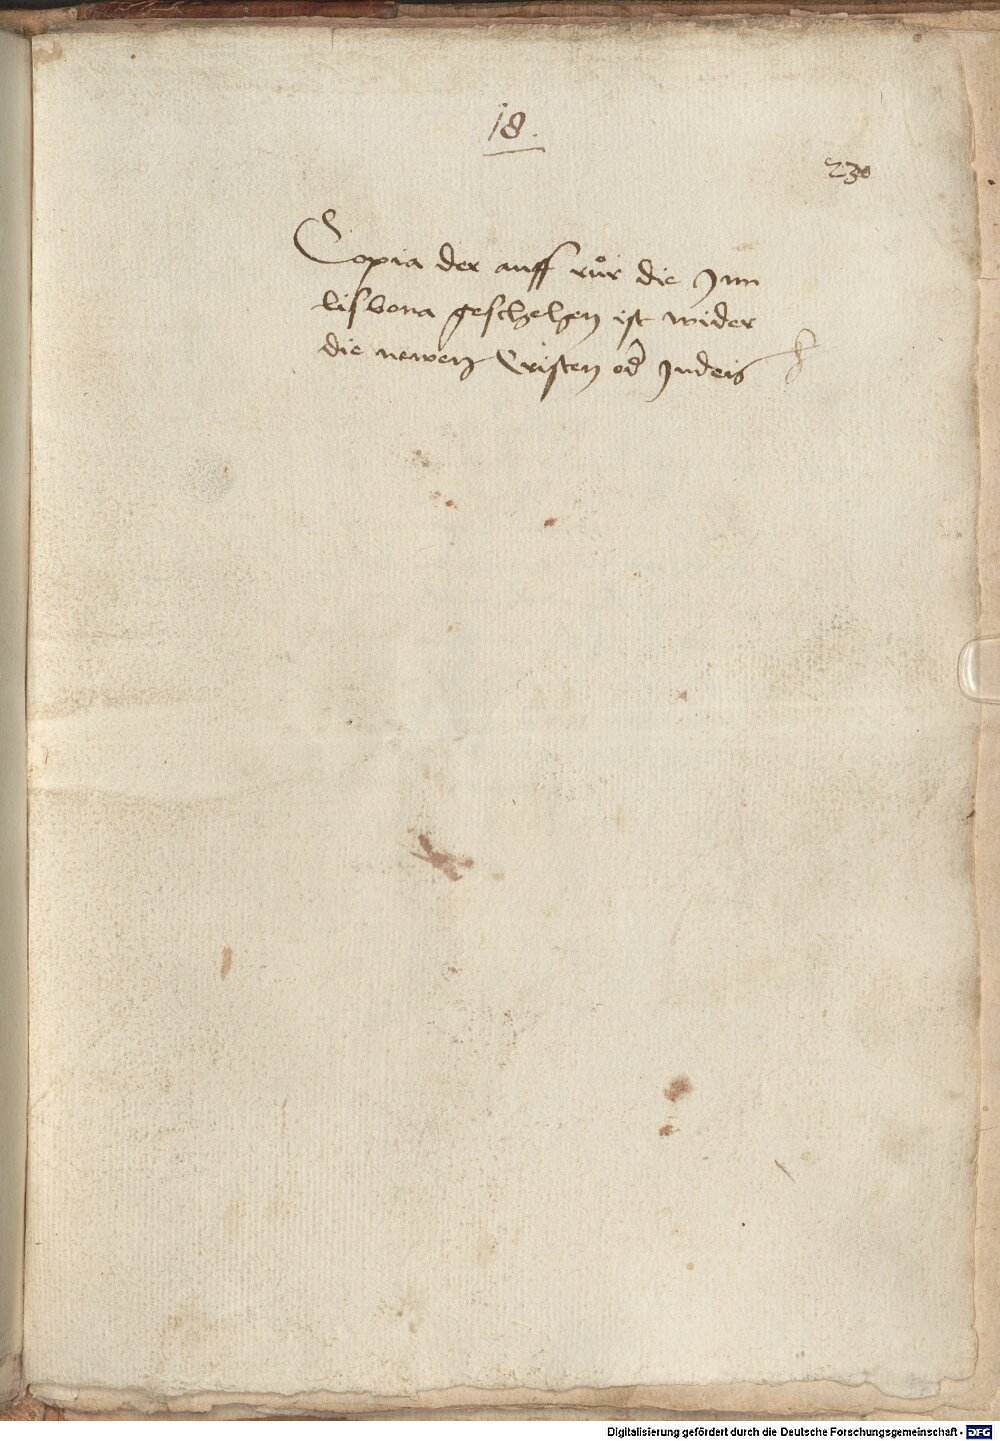 18.
230
Copia der auff růr die Jnn
lisbona geschehen ist wider
die newen Cristen od Judeis
Digitalisierung gefördert durch die Deutsche Forschungsgemeinschaft - DFG